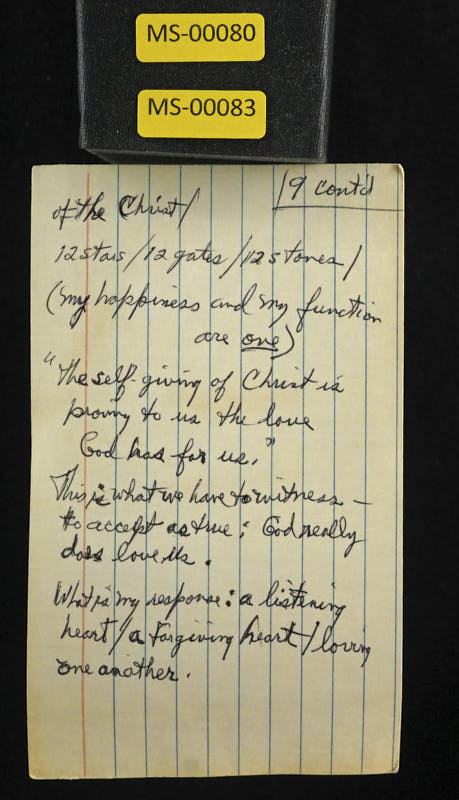 MS-00080
MS-00083
19 cont'd
of the Christ/
12 stars/12 gates/12 stones/
(my happiness and my function
are one)
"The self-giving of Christ is
proving to us the love
God has for us."
This is what we have to witness –
to accept as true: God really
does love us.
What is my response: a listening
heart/a forgiving heart/loving
one another.